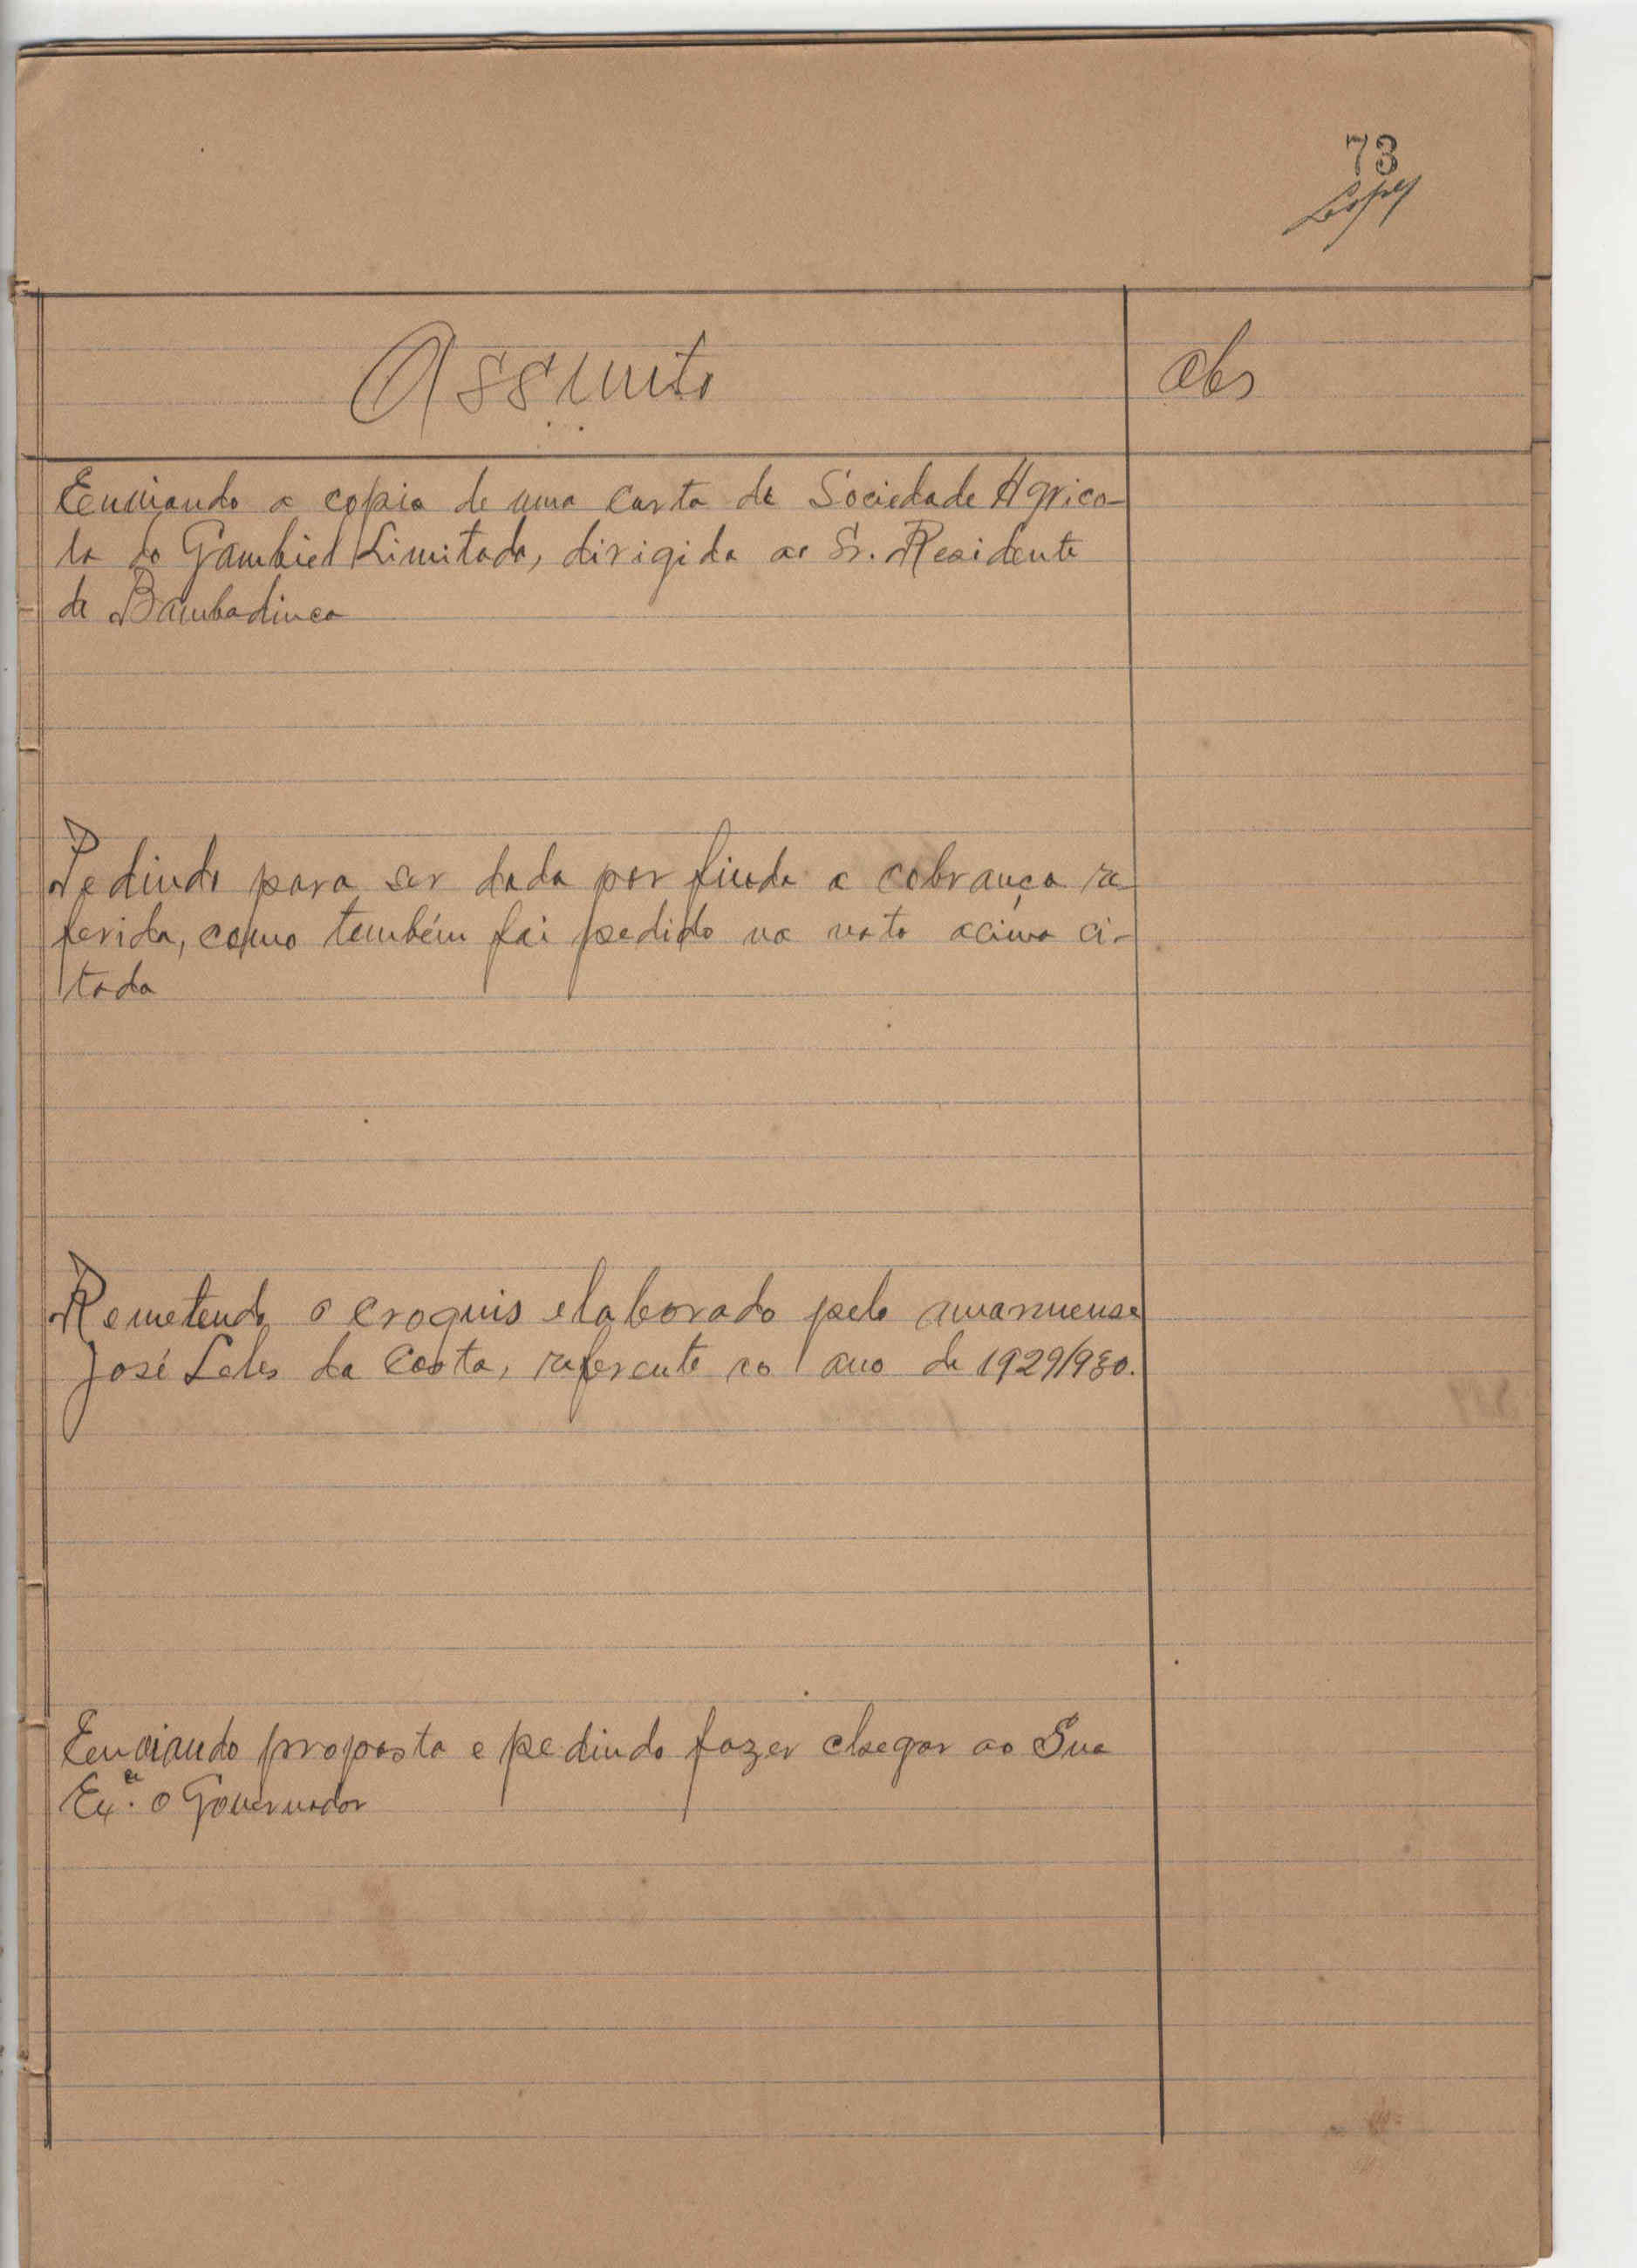 73
Lopes
Assunto
obs
Enviando a copia de uma carta da Sociedade Agrico-
la do Gambiel Limitada, dirigida ao Sr. Residente
de Bambadinca
Pedindo para ser dada por finda a cobrança re-
ferida, como também foi pedido na nota acima ci-
tada
Remetendo o croquis elaborado pelo amanuense
José Teles da Costa, referente ao ano de 1929/930.
Enviando proposta e pedindo fazer chegar ao Sua
Exª. o Governador